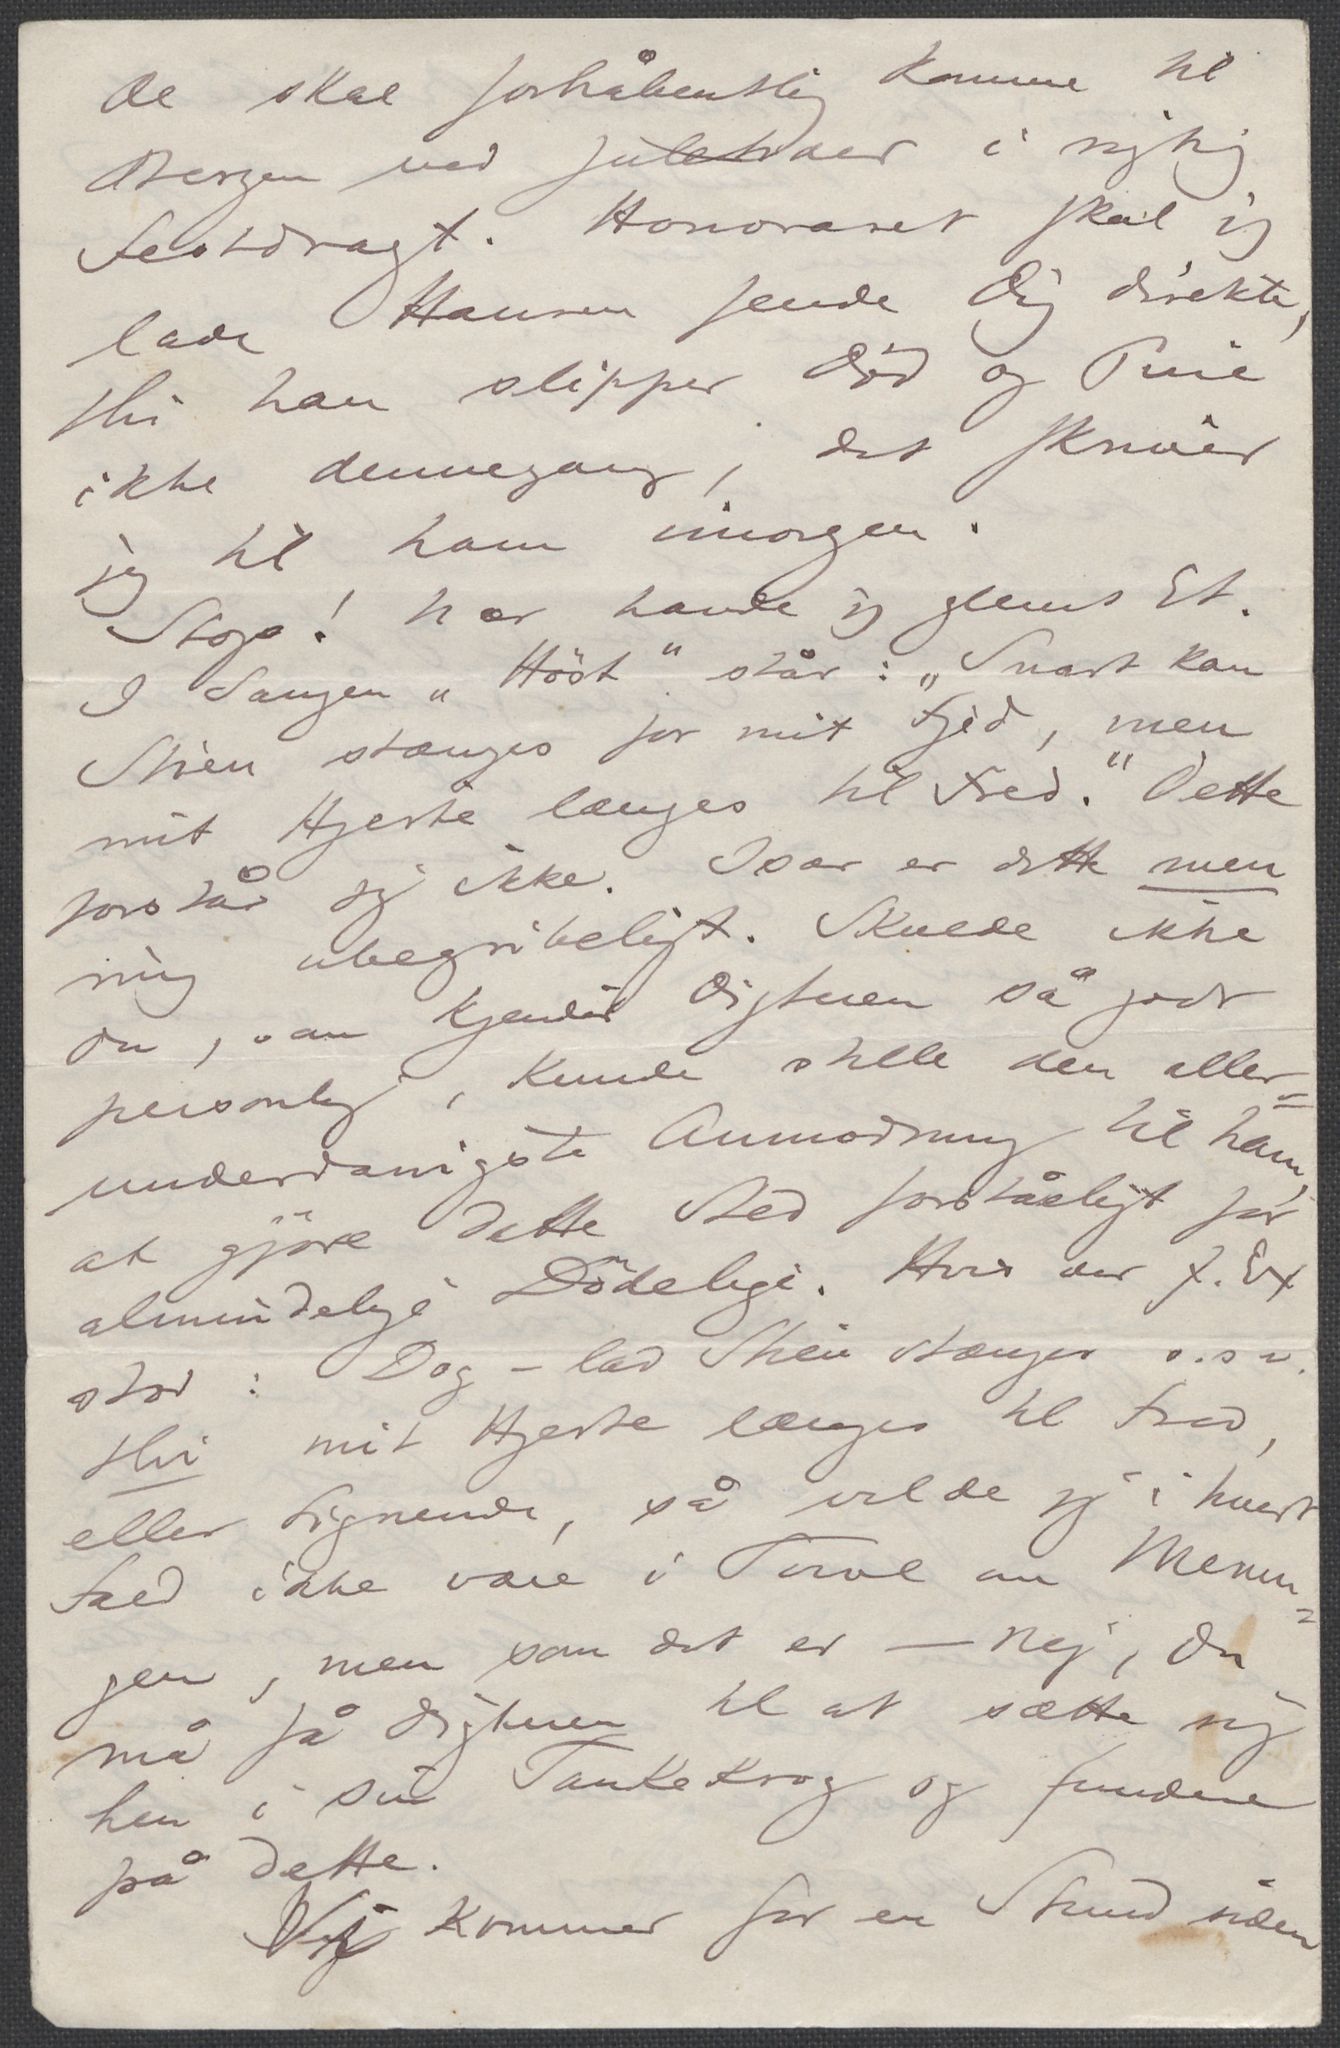 De skal forhåbentlig komme til
Bergen ved Juletider i rigtig
Festdragt. Honoraret skal jeg
lade Hansen sende Dig direkte,
thi han slipper Død og Pine
ikke dennegang, det skriver
jeg til ham imorgen.
Stop! her havde jeg glemt Et.
I Sangen „Höst" står: „Snart kan
Stien stænges for mit Fjed, men
mit Hjerte længes til Fred." Dette
forstår jeg ikke. Især er dette men
mig ubegribeligt. Skulde ikke
du, som kjender Digteren så godt
personlig, kunde stille den aller=
underdanigste Anmodning til ham,
at gjöre dette Sted forståeligt for
almindelige Dödelige. Hvis der f. Ex
stod: Dog – lad Stien stænges o.s.v.
thi mit Hjerte længes til Fred,
eller Lignende, så vilde jeg i hvert
Fald ikke være i Tvivl om Menin=
gen, men som det er — nej, du
må få Digteren til at sætte sig
hen i sin Tankekrog og fundere
på dette.
kommer for en Stund siden